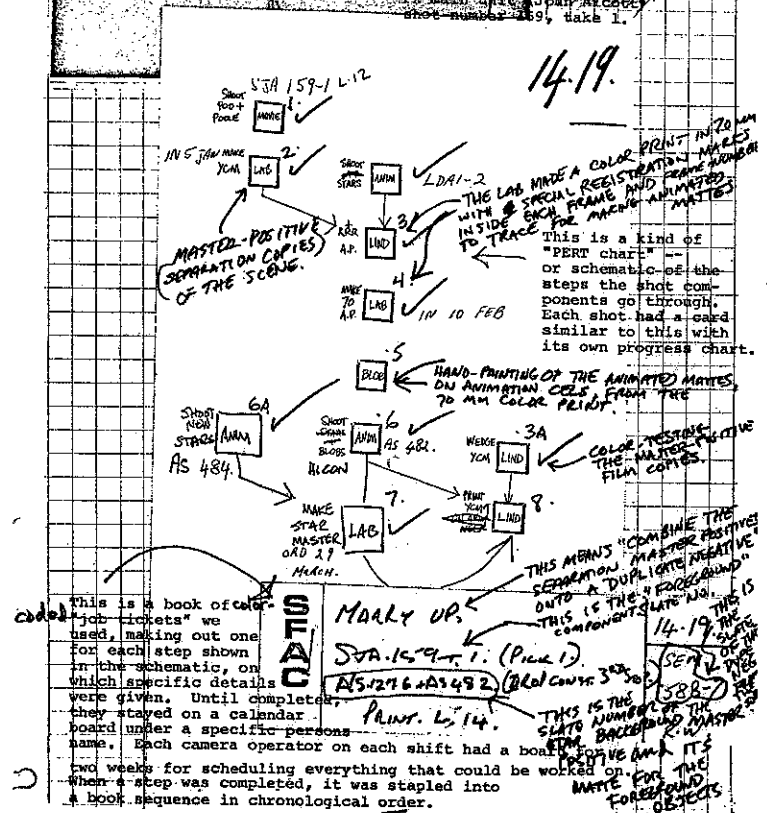 shot number 159, take 1.
14.19.
SJA 159-1 L.12
SHOOT
POD +
POOLE
1.
MOVIE
IN 5 JAN MAKE
YCM
LAB
2.
SHOOT
STARS
ANIM
LDA1-2
THE LAB MADE A COLOR PRINT IN 70 MM
WITH SPECIAL REGISTRATION MARKS
INSIDE EACH FRAME AND FRAME NUMBER
TO TRACE FOR MAKING ANIMATED
MATTES
3
A.P.
LIND
MASTER-POSITIVE
(SEPARATION COPIES)
OF THE SCENE.
This is a kind of
"PERT chart" --
or schematic of the
steps the shot com-
ponents go through.
Each shot had a card
similar to this with
its own progress chart.
4.
MAKE
70
A.P.
LAB
IN 10 FEB
5
BLOB
HAND-PAINTING OF THE ANIMATED MATTES,
ON ANIMATION CELS, FROM THE
70 MM COLOR PRINT.
6A
SHOOT
NEW
STARS
ANIM
AS 484.
6
SHOOT
BLOBS
ANIM
AS 482.
HICON
3A
WEDGE
YCM
LIND
COLOR-TESTING
THE MASTER-POSITIVE
FILM COPIES.
7.
MAKE
STAR
MASTER
LAB
ORD 29
MARCH.
PRINT
YCM
LIND
8.
THIS MEANS "COMBINE THE
SEPARATION MASTER POSITIVES
ONTO A DUPLICATE NEGATIVE"
THIS IS THE "FOREGROUND"
COMPONENT SLATE NO.
This is a book of color-
coded "job tickets" we
used, making out one
for each step shown
in the schematic, on
which specific details
were given. Until completed,
they stayed on a calendar
board under a specific persons
name. Each camera operator on each shift had a board for
two weeks for scheduling everything that could be worked on.
When a step was completed, it was stapled into
a book sequence in chronological order.
SFAC
MARRY UP.
SJA.159-1. (PICK 1)
AS.1276 + AS482
PRINT. L.14.
14.19
THIS IS
THE
SLATE
OF THE
DUPE
NEG
THIS IS THE
SLATE NUMBER OF THE
STAR BACKGROUND MASTER
POSITIVE AND ITS
MATTE FOR THE
FOREGROUND
OBJECTS